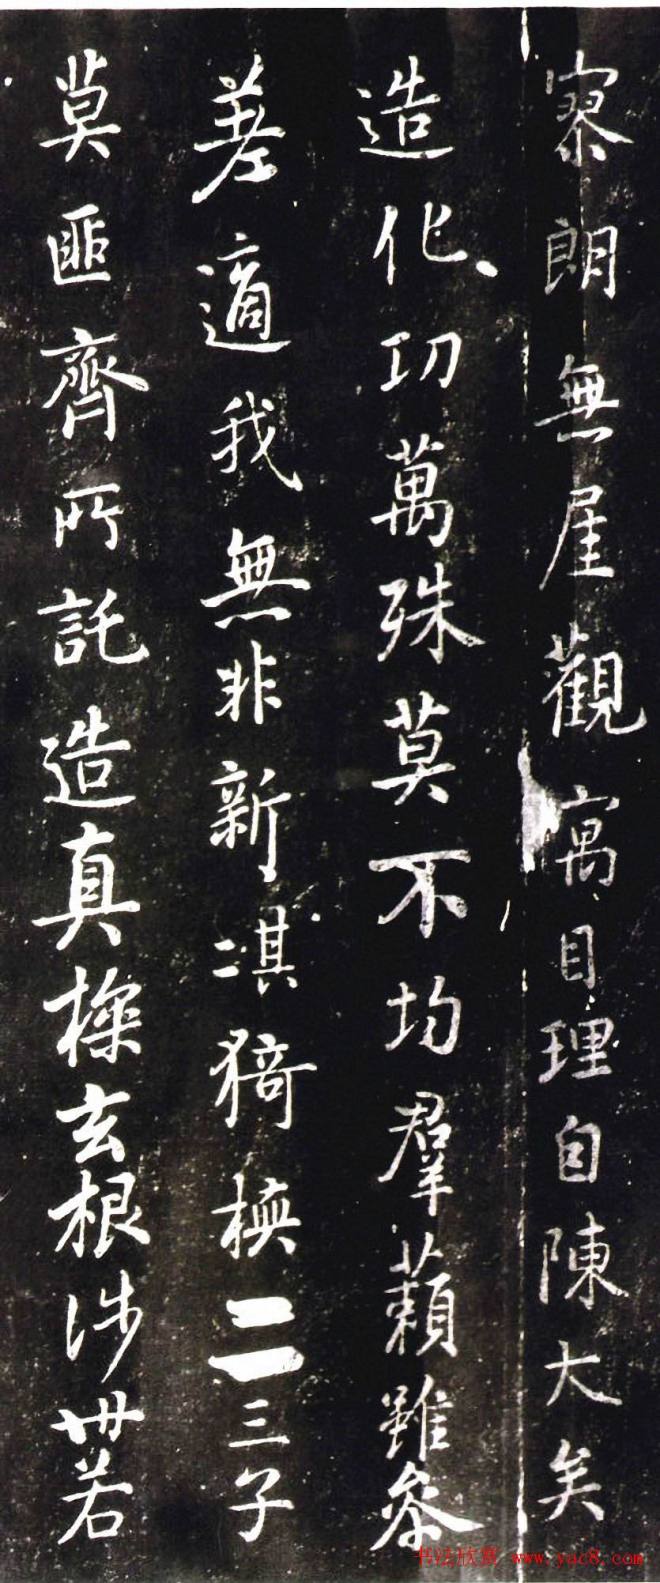 寥朗無厓觀寓目理自陳大矣
造化功萬殊莫不均羣藾雖參
差適我無非新猗二三子
莫匪齊所託造真探玄根涉世若
书法欣赏 www.yac8.com